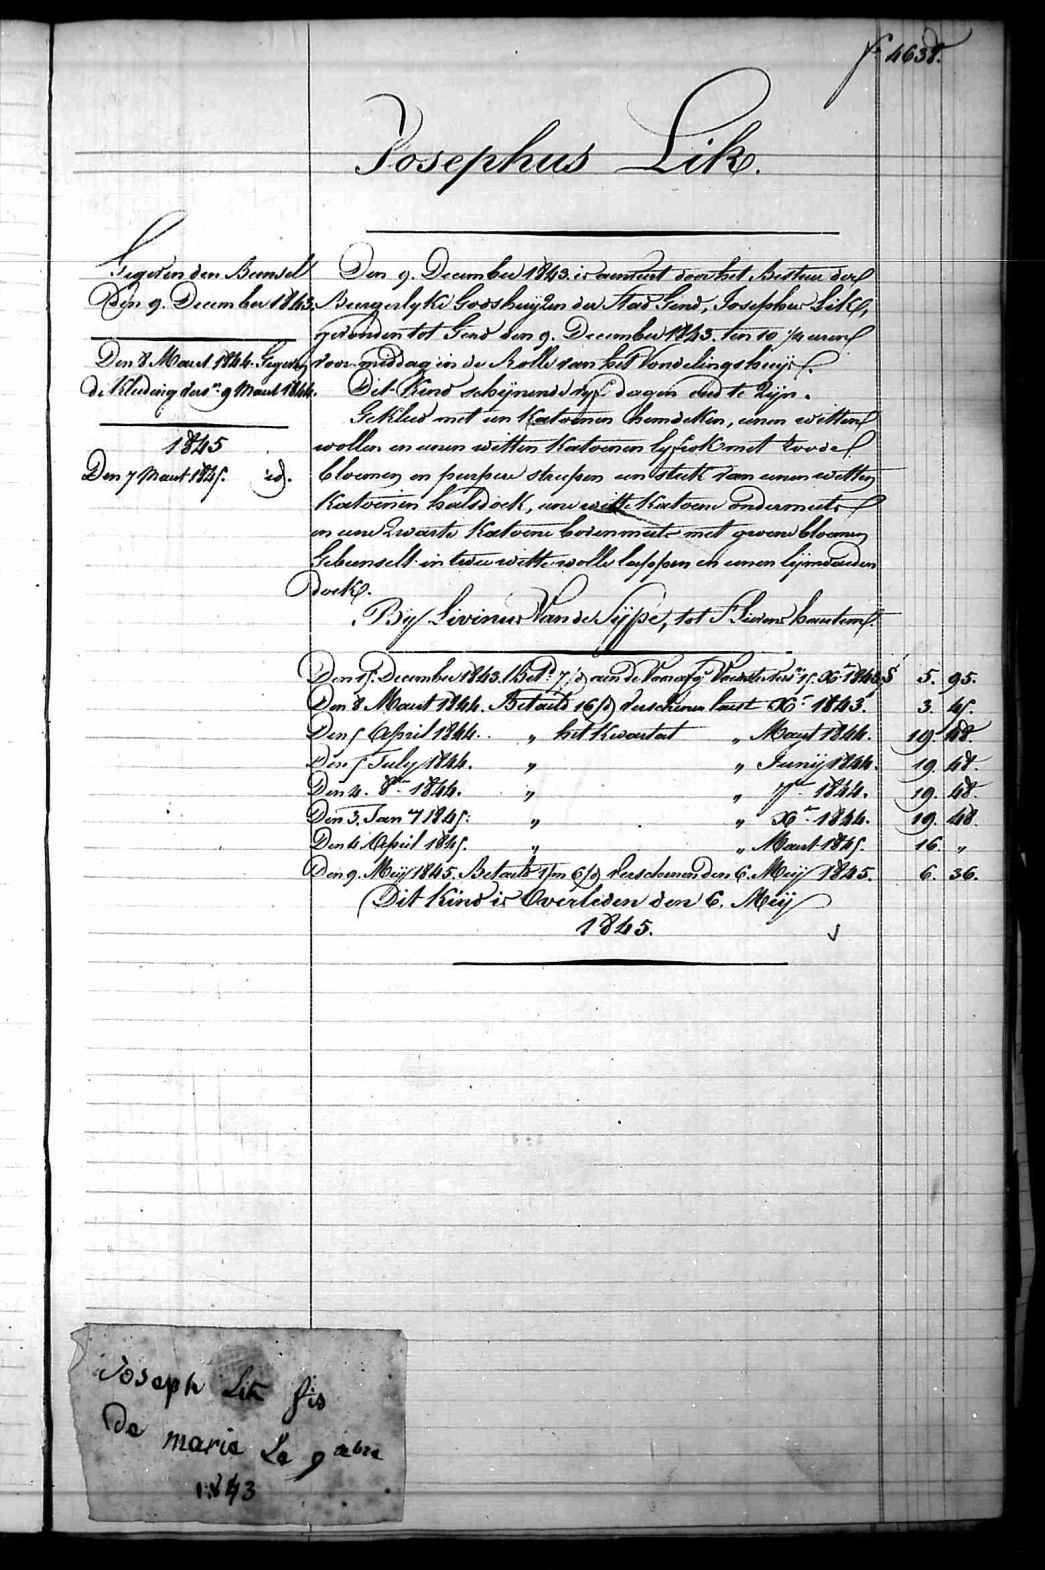 f° 4638.
Josephus Lik.
Gegeven den Bunsel
Den 9. December 1843.
Den 8 Maart 1844. Gegeven
de Kleding vers.n 9 Maart 1844.
1845
Den 7 Maart 1845. id.
Den 9. December 1843. is aenveert door het Bestuer der
Burgerlyke Godshuijzen der Stad Gend, Josephus Lik,
gevonden tot Gend den 9. December 1843. ten 10 ½ uren
voormiddag in de Rolle van het Vondelingshuijs.
Dit Kind schijnende vyf dagen oud te Zijn.
Gekleed met een Katoenen hemdeken, eenen witten
wollen en eenen witten Katoenen lyfrok met roode
bloemen en purpere streepen een stuk van eenen witten
Katoenen halsdoek, eene witte Katoene ondermuts
en eene Zwarte Katoene bovenmuts met groene bloemen
Gebunselt in twee witte wolle lappen en eenen lijnwaeden
doek.
By Livinus Van de Sijpe, tot St Lievens hautem.
Den 15. December 1843. Bet.d 7/d aen de 15. X.r 1843. 5. 95.
Den 8 Maart 1844. Betaeld 16/d verschenen laest X.r 1843. 3. 45.
Den 5 April 1844. „ het Kwartael „ Maart 1844. 19. 48.
Den 5 July 1844. „ „ Junij 1844. 19. 48.
Den 4. 8.r 1844. „ „ 7.r 1844. 19. 48.
Den 3. Jan.y 1845. „ „ X.r 1844. 19. 48.
Den 4 April 1845. „ „ Maart 1845. 16. „
Den 9. Meij 1845. Betaeld 1/m 6/d verschenen den 6. Meij 1845. 6. 36.
Dit Kind is Overleden den 6. Meij
1845.
Joseph Lik fis
De marie Le 9 cebre
1843